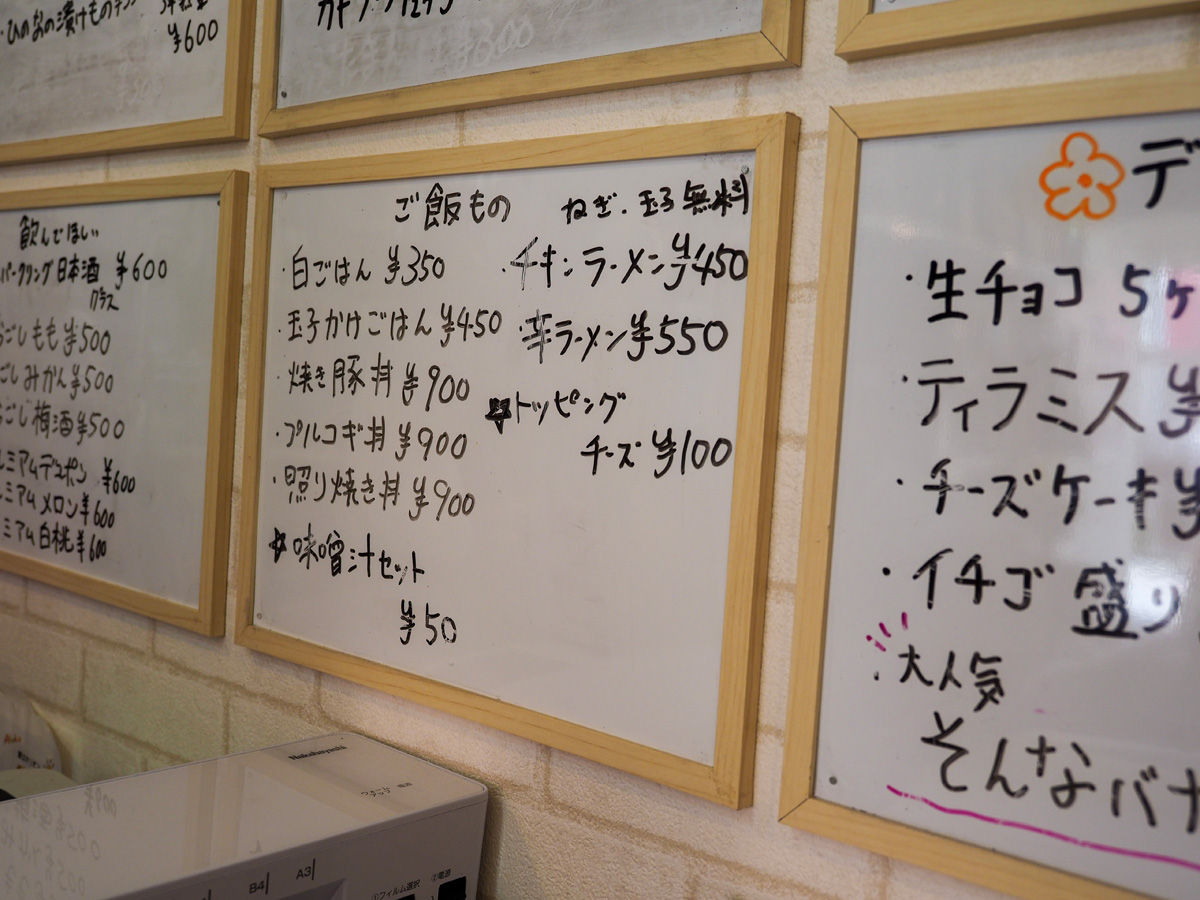 ひのなの漬けもの
¥600
飲んでほしい
パークリング日本酒 ¥600
グラス
ごしもも ¥500
ごしみかん ¥500
ごし梅酒 ¥500
ミアムデコポン ¥600
ミアムメロン ¥600
ミアム白桃 ¥600
ご飯もの ねぎ、玉子無料
・白ごはん ¥350
・玉子かけごはん ¥450
・焼き豚丼 ¥900
・プルコギ丼 ¥900
・照り焼き丼 ¥900
☆味噌汁セット
¥50
・チキンラーメン ¥450
・辛ラーメン ¥550
☆トッピング
チーズ ¥100
デ
・生チョコ 5ヶ
・ティラミス ¥
・チーズケーキ ¥
・イチゴ盛り
大人気
・そんなバナ
Nakabayashi
B4 A3
①フィルム選択 ②電源